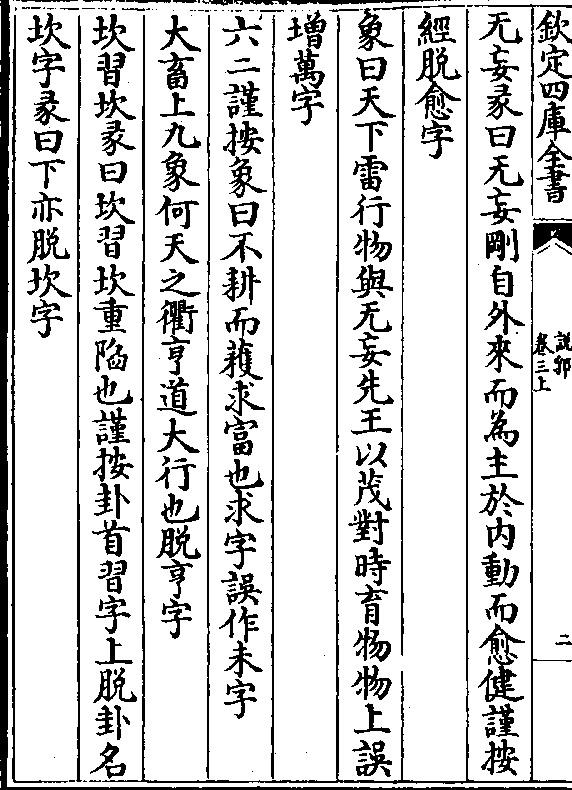 欽定四庫全書
說郛
卷三上
二
无妄彖曰无妄剛自外來而為主於内動而愈健謹按
經脱愈字
象曰天下雷行物與无妄先王以茂對時育物物上誤
增萬字
六二謹按象曰不耕而穫求富也求字誤作未字
大畜上九象何天之衢亨道大行也脱亨字
坎習坎彖曰坎習坎重陷也謹按卦首習字上脱卦名
坎字彖曰下亦脱坎字